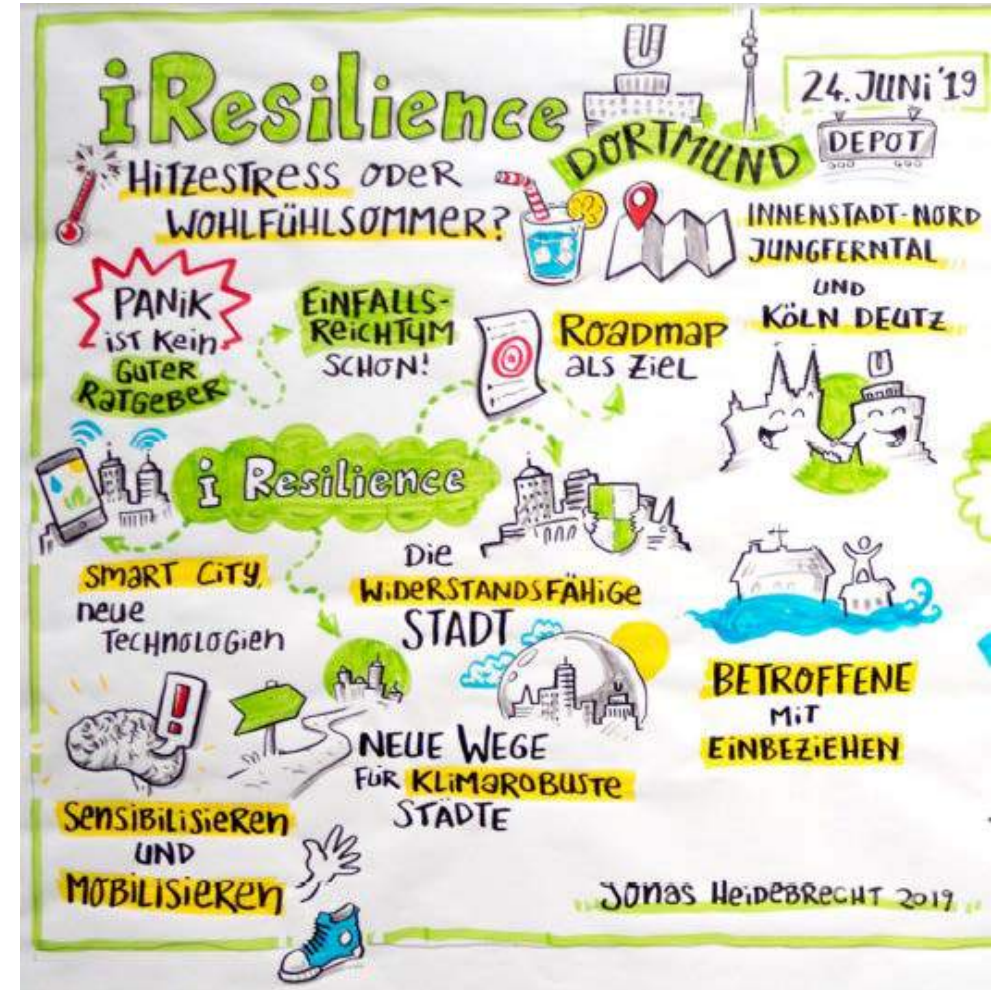 iResilience
DORTMUND
U
24. JUNI '19
DEPOT
HITZESTRESS ODER
WOHLFÜHLSOMMER?
INNENSTADT-NORD
JUNGFERNTAL
UND
KÖLN DEUTZ
PANIK
IST KEIN
GUTER
RATGEBER
EINFALLS-
REICHTUM
SCHON!
ROADMAP
ALS ZIEL
U
i Resilience
SMART CITY,
NEUE
TECHNOLOGIEN
DIE
WIDERSTANDSFÄHIGE
STADT
NEUE WEGE
FÜR KLIMAROBUSTE
STÄDTE
U
BETROFFENE
MIT
EINBEZIEHEN
!
SENSIBILISIEREN
UND
MOBILISIEREN
JONAS HEIDEBRECHT 2019